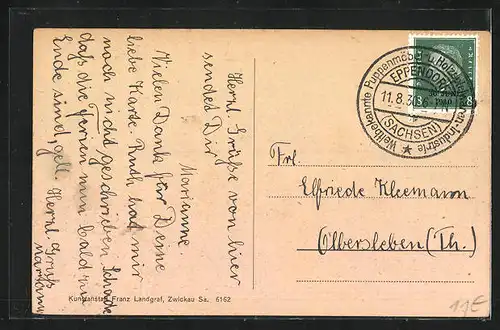 Herzl. Grüße von hier
sendet Dir
Marianne.
Vielen Dank für Deine
liebe Karte. Ruth hat mir
noch nicht geschrieben. Schade
daß die Ferien nun bald zu
Ende sind, gell. Herzl. Gruß
Marianne
Weltbekannte Puppenmöbel- u. Holzwaren-Industrie
EPPENDORF
11.8.30
(SACHSEN)
8
Frl.
Elfriede Kleemann
Olbersleben (Th.)
Kunstanstalt Franz Landgraf, Zwickau Sa. 6162